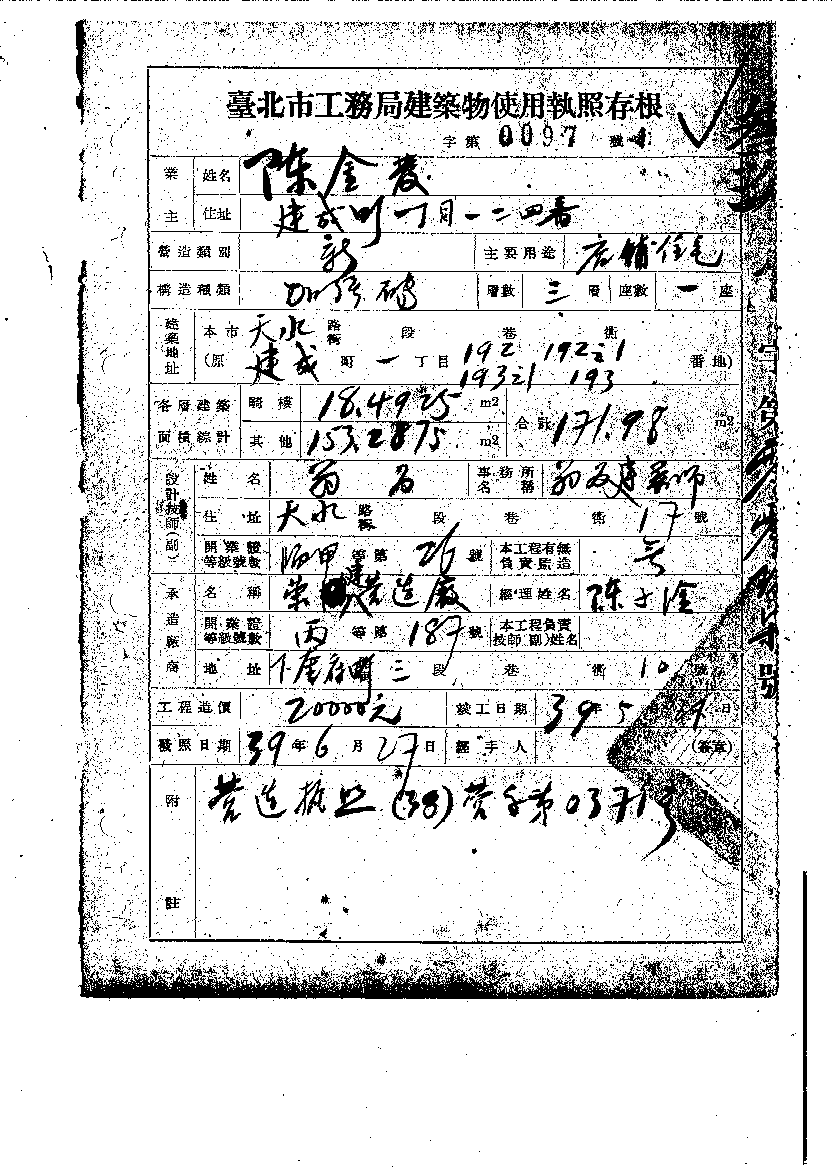 臺北市工務局建築物使用執照存根
字第 0097 號
業主 姓名 陈金
住址 建成町一丁目一二四番
營造類別 新 主要用途 店鋪住宅
構造種類 加強磚 層數 三層 座數 一座
建築地址 本市 天水 路街 段 巷 衖
(原 建成町一丁目 192 192之1 番地)
193之1 193
各層建築面積綜計 騎樓 18.4925 m2 合計 171.98 m2
其他 153.2875 m2
設計技師(副) 姓名 事務所名稱 建築師
住址 天水 路街 段 巷 衖 17 號
開業證等級號數 甲 等第 26 號 本工程有無負責監造
承造廠商 名稱 營造廠 經理姓名 陈
開業證等級號數 丙 等第 187 號 本工程負責技師(副)姓名
地址 下奎府町三段 巷 衖 10 號
工程造價 20000元 竣工日期 39年5月 日
發照日期 39年6月27日 經手人 (簽章)
附註 营造执照(38)营字第0371号
字第
號